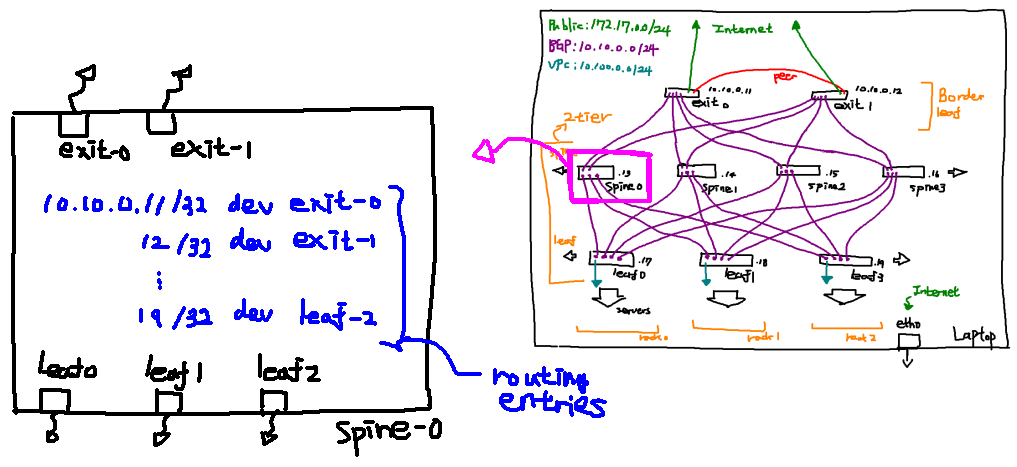 exit-0 exit-1
10.10.0.11/32 dev exit-0
12/32 dev exit-1
⋮
19/32 dev leaf-2
leaf0 leaf1 leaf2
Spine-0
routing
entries
Public:172.17.0.0/24
BGP:10.10.0.0/24
VPC:10.100.0.0/24
Internet
peer
10.10.0.11
10.10.0.12
exit0
exit1
Border
leaf
2-tier
.13
.14
.15
.16
Spine0
Spine1
Spine2
Spine3
leaf
.17
.18
.19
leaf0
leaf1
leaf3
servers
rack0
rack1
rack2
Internet
eth0
Laptop